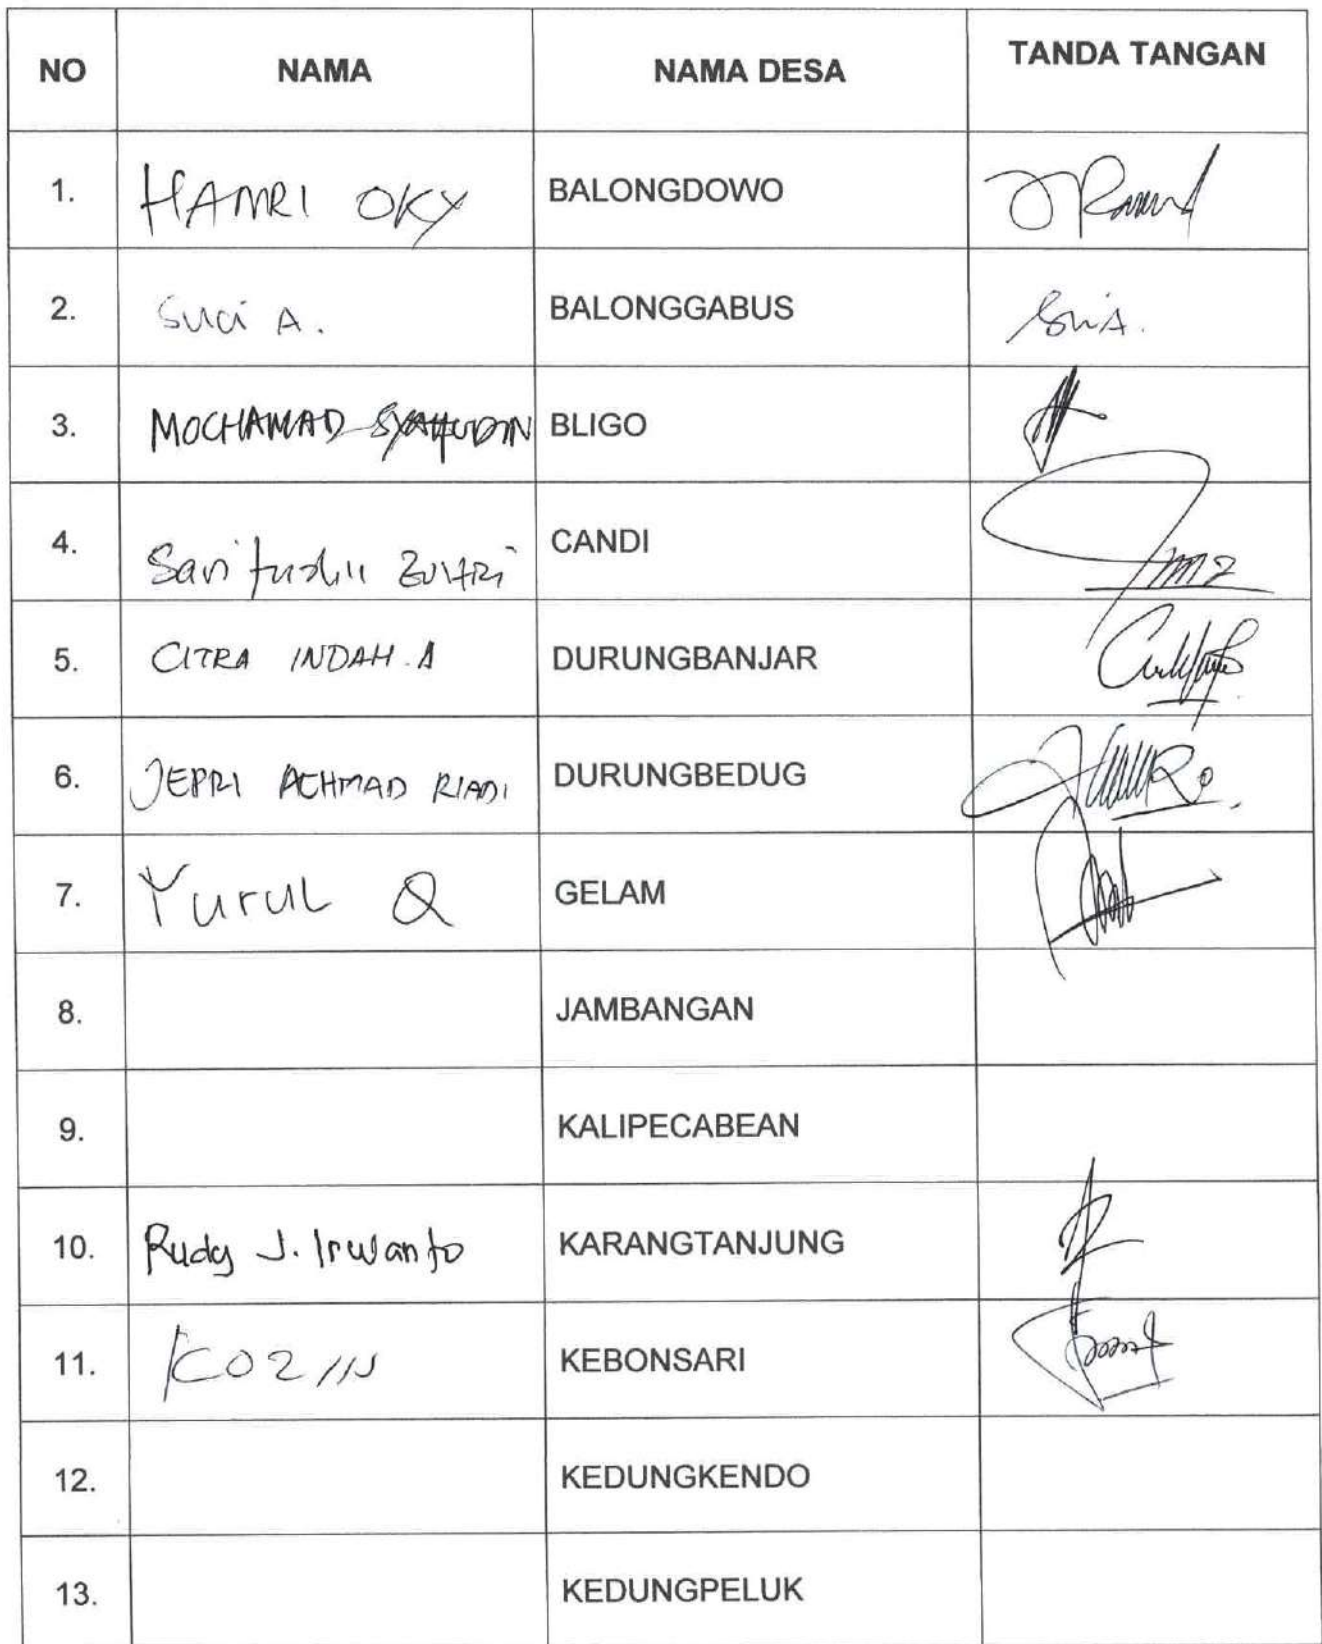 NO NAMA NAMA DESA TANDA TANGAN
1. HAMRI OKY BALONGDOWO
2. Suci A. BALONGGABUS
3. MOCHAMAD SYAIFUDIN BLIGO
4. CANDI
5. CITRA INDAH.A DURUNGBANJAR
6. JEPRI ACHMAD RIADI DURUNGBEDUG
7. Yurul Q GELAM
8. JAMBANGAN
9. KALIPECABEAN
10. Rudy J. Irwanto KARANGTANJUNG
11. KOZIN KEBONSARI
12. KEDUNGKENDO
13. KEDUNGPELUK